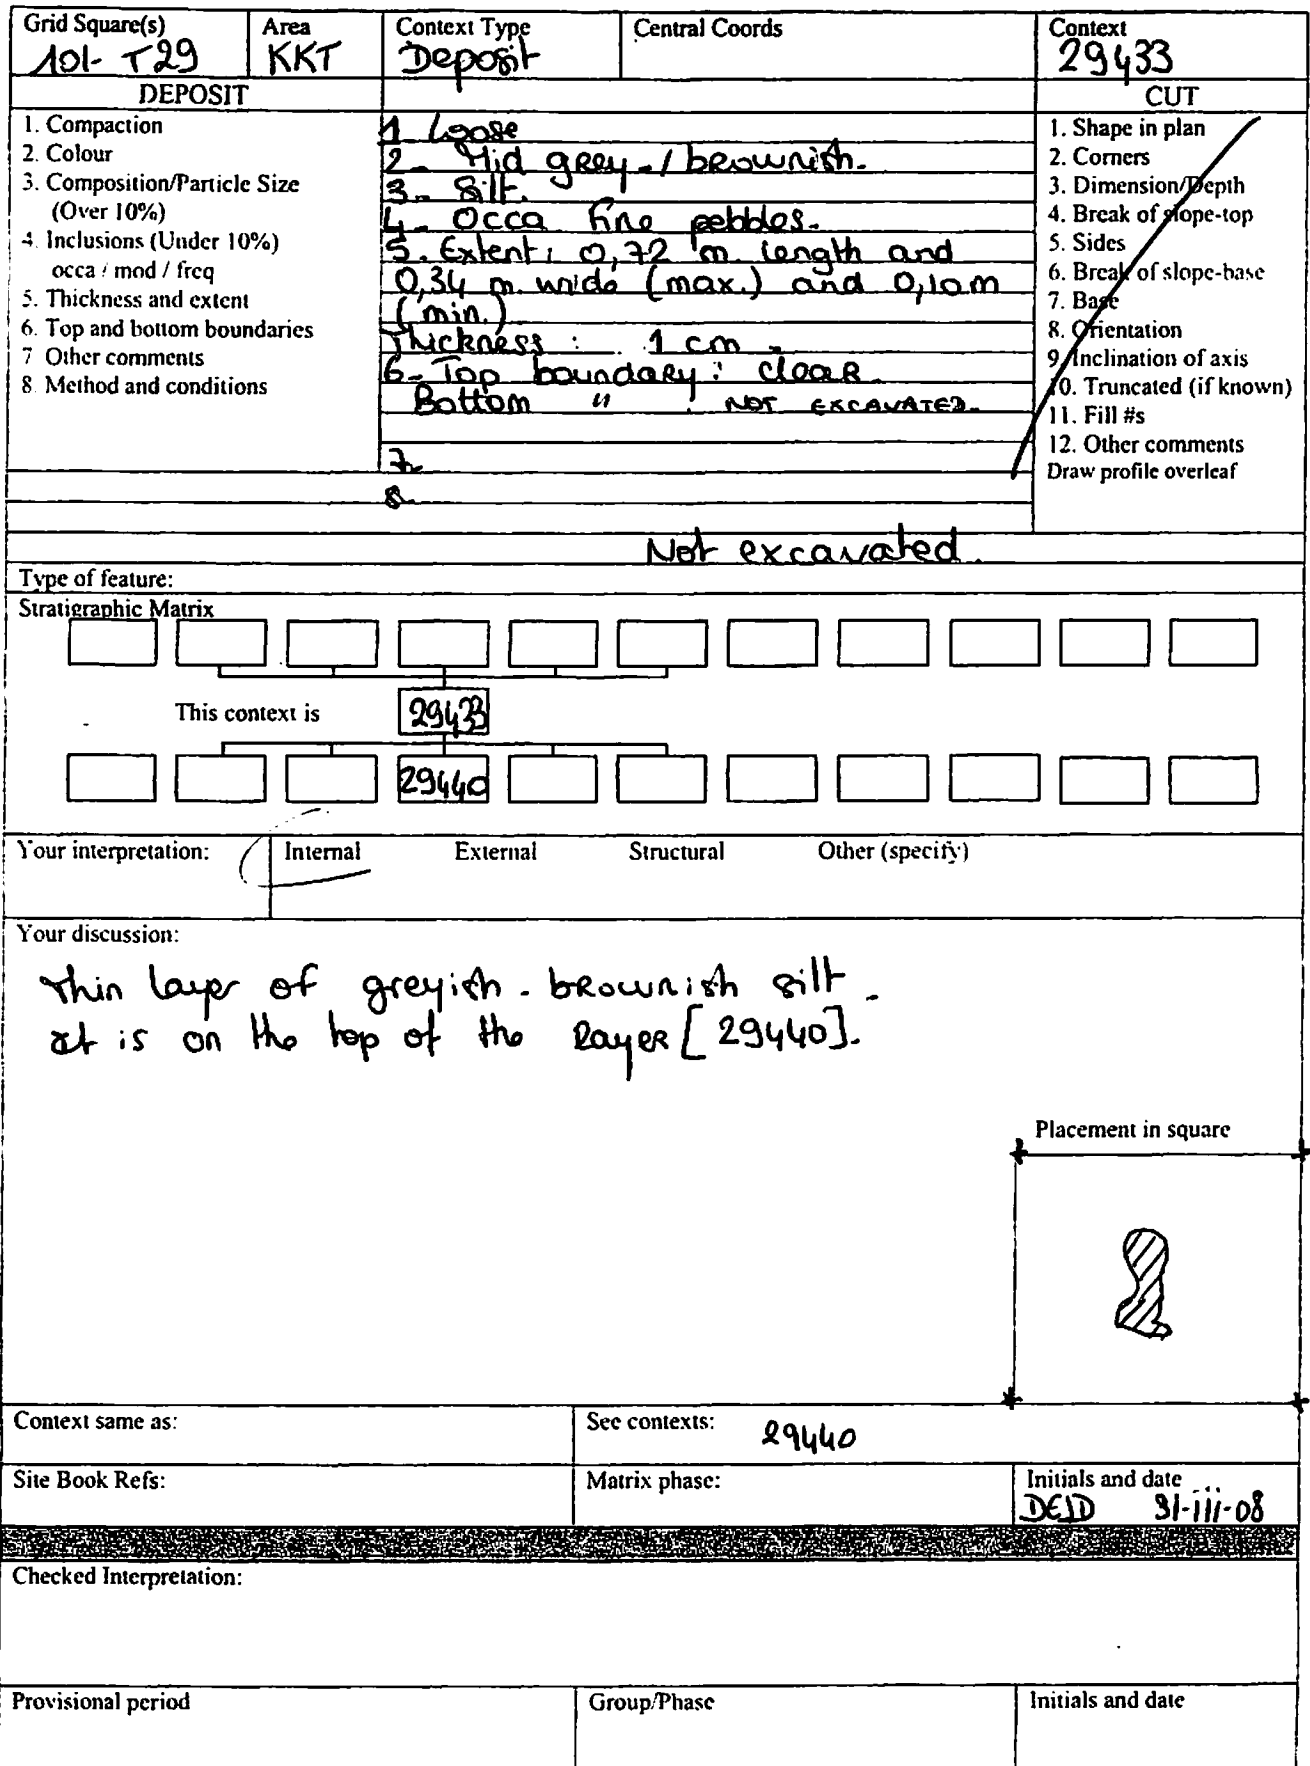 Grid Square(s) Area Context Type Central Coords Context
101- T29 KKT Deposit 29433
DEPOSIT CUT
1. Compaction
2. Colour
3. Composition/Particle Size
(Over 10%)
4. Inclusions (Under 10%)
occa / mod / freq
5. Thickness and extent
6. Top and bottom boundaries
7 Other comments
8. Method and conditions
1 Loose
2- Mid grey-/brownish.
3- Silt.
4- Occa fine pebbles.
5. Extent: 0,72 m. length and
0,34 m. wide (max.) and 0,10m
(min.)
Thickness : 1 cm -
6- Top boundary: clear
Bottom " : NOT EXCAVATED.
7.
8.
Not excavated.
1. Shape in plan
2. Corners
3. Dimension/Depth
4. Break of slope-top
5. Sides
6. Break of slope-base
7. Base
8. Orientation
9. Inclination of axis
10. Truncated (if known)
11. Fill #s
12. Other comments
Draw profile overleaf
Type of feature:
Stratigraphic Matrix
This context is 29433
29440
Your interpretation: Internal External Structural Other (specify)
Your discussion:
Thin layer of greyish-brownish silt.
It is on the top of the layer [29440].
Placement in square
Context same as: See contexts: 29440
Site Book Refs: Matrix phase: Initials and date
31-iii-08
Checked Interpretation:
Provisional period Group/Phase Initials and date